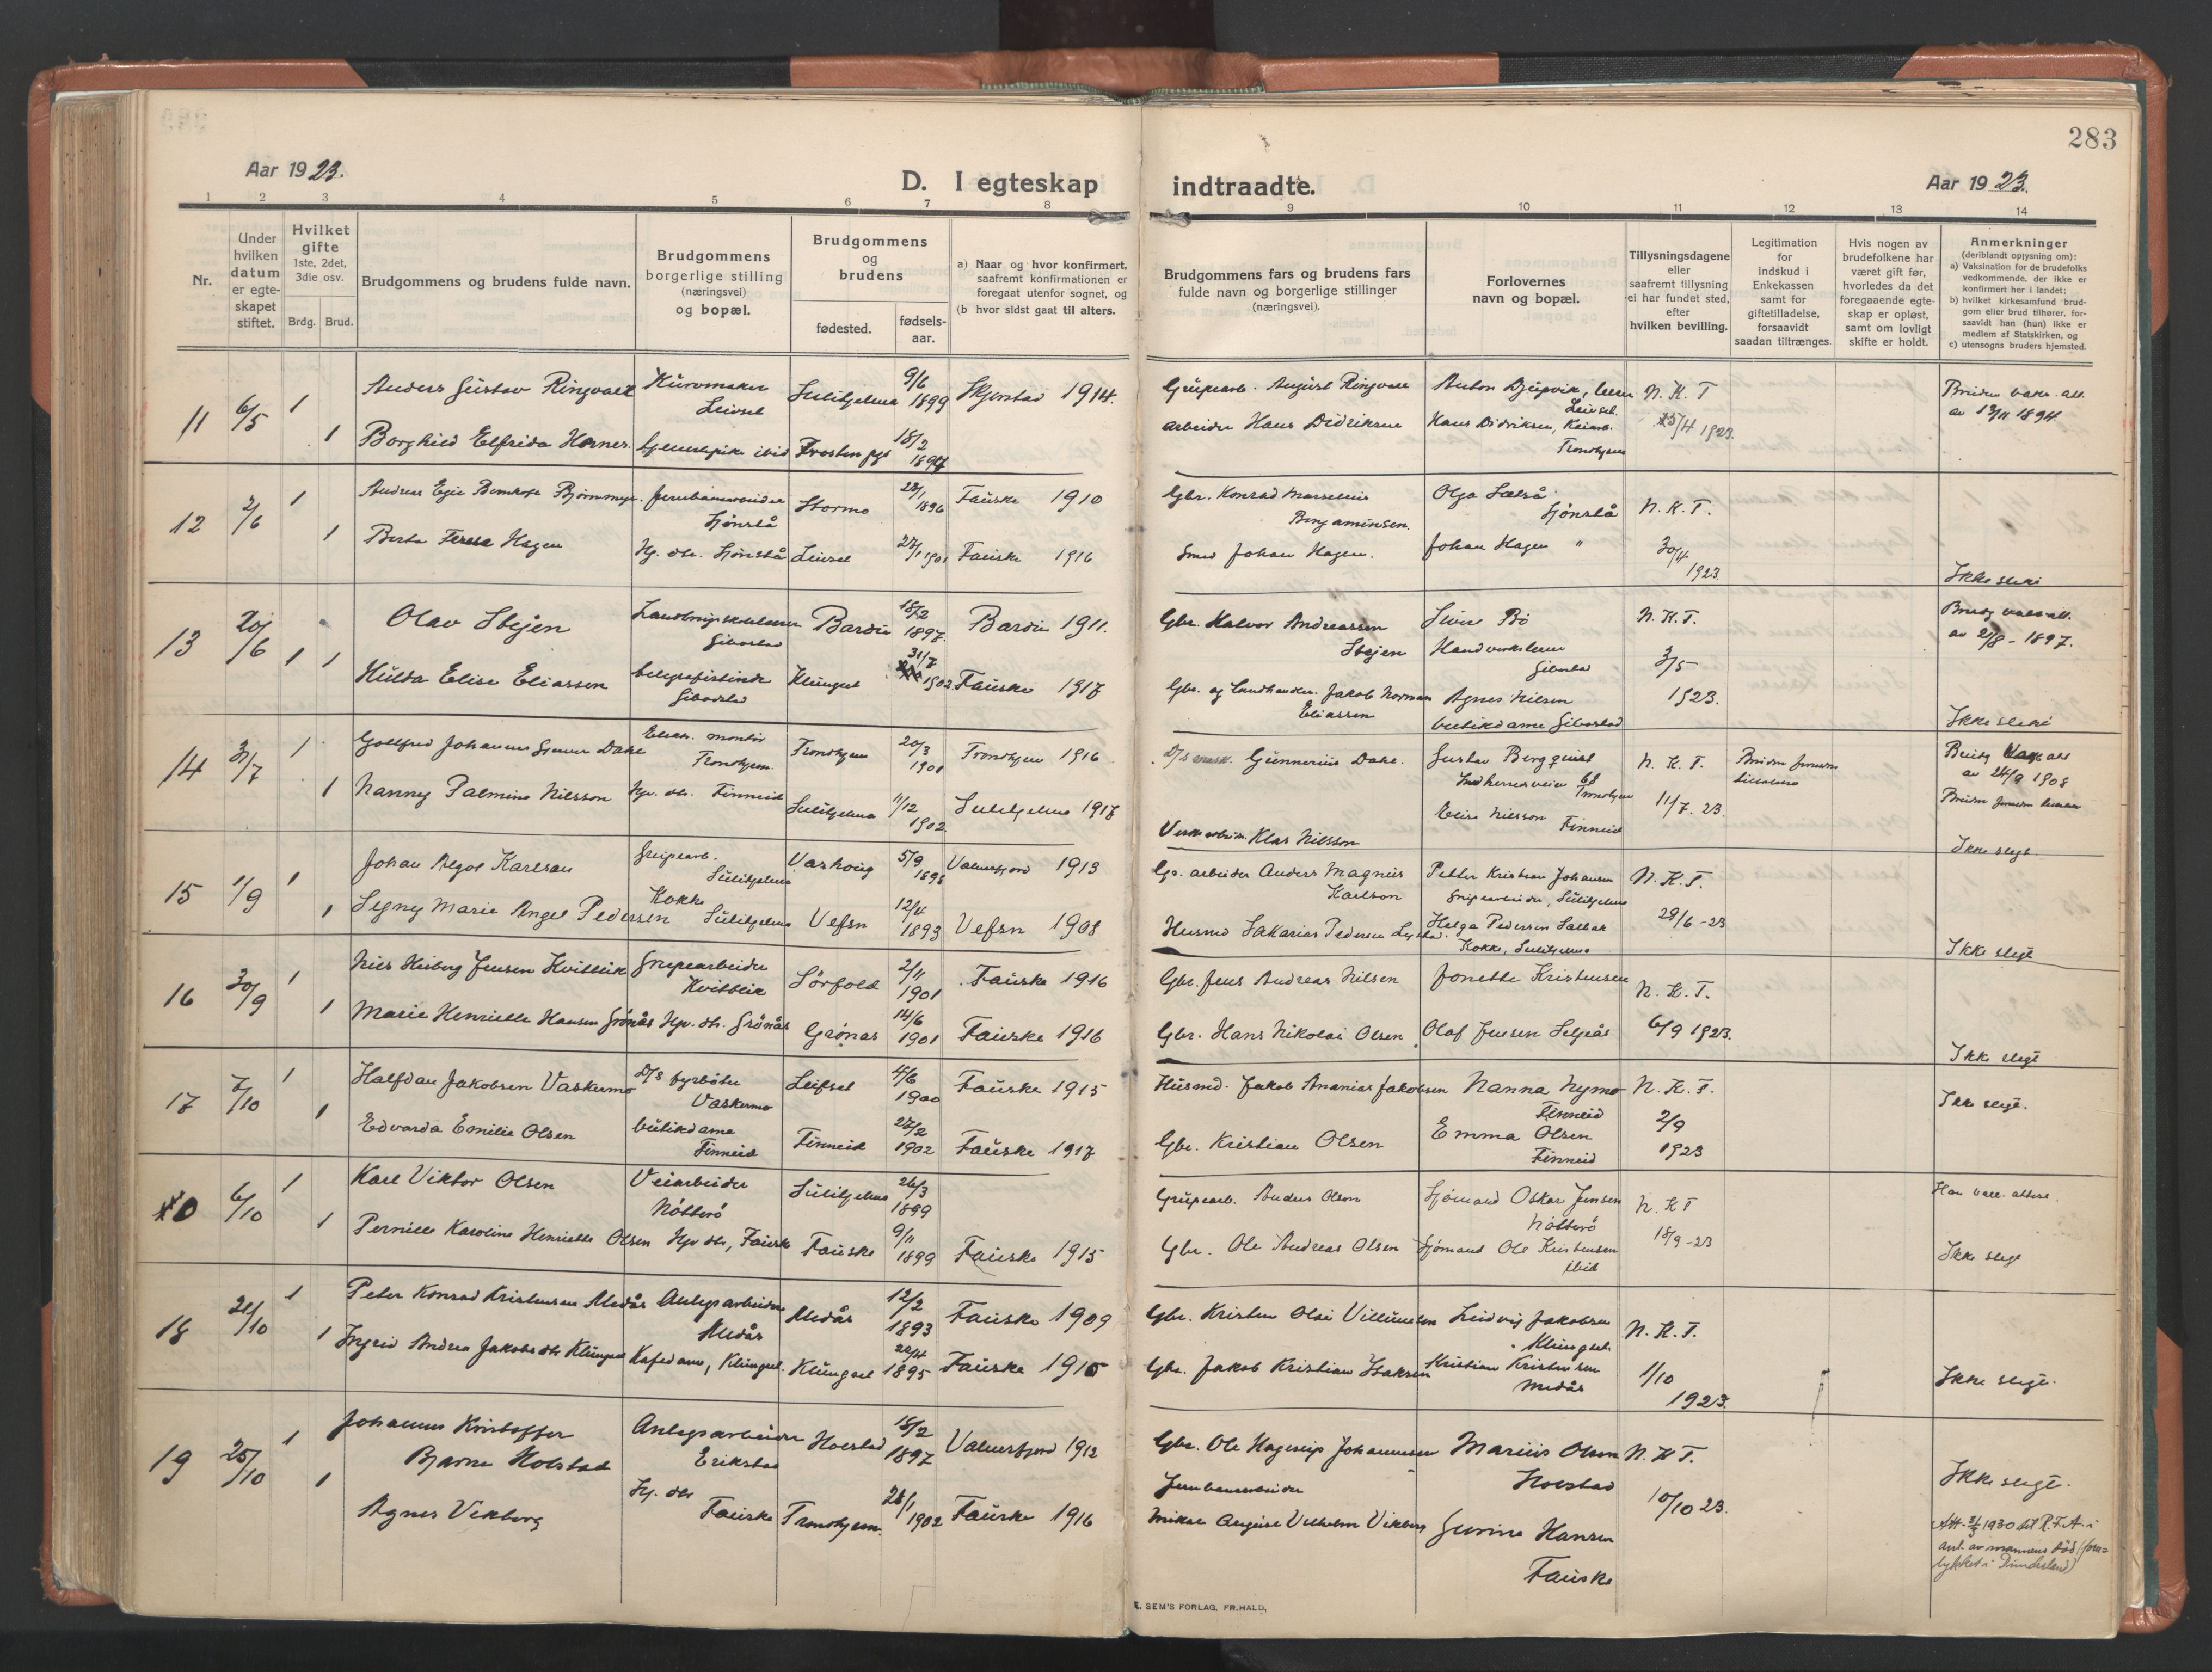 283
Aar 1923.
D. I egteskap
indtraadte.
Aar 1923.
1 2 3 4 5 6 7 8 9 10 11 12 13 14
Nr.
Under
hvilken
datum
er egte-
skapet
stiftet.
Hvilket
gifte
1ste, 2det,
3die osv.
Brdg. Brud.
Brudgommens og brudens fulde navn.
Brudgommens
borgerlige stilling
(næringsvei)
og bopæl.
Brudgommens
og
brudens
fødested.
fødsels-
aar.
a) Naar og hvor konfirmert,
saafremt konfirmationen er
foregaat utenfor sognet, og
(b hvor sidst gaat til alters.
Brudgommens fars og brudens fars
fulde navn og borgerlige stillinger
(næringsvei).
Forlovernes
navn og bopæl.
Tillysningsdagene
eller
saafremt tillysning
ei har fundet sted,
efter
hvilken bevilling.
Legitimation
for
indskud i
Enkekassen
samt for
giftetilladelse,
forsaavidt
saadan tiltrænges.
Hvis nogen av
brudefolkene har
været gift før,
hvorledes da det
foregaaende egte-
skap er opløst,
samt om lovligt
skifte er holdt.
Anmerkninger
(deriblandt oplysning om):
a) Vaksination for de brudefolks
vedkommende, der ikke er
konfirmert her i landet;
b) hvilket kirkesamfund brud-
gom eller brud tilhører, for-
saavidt han (hun) ikke er
medlem af Statskirken, og
c) utensogns bruders hjemsted.
11 6/5 1 Anders Gustav Ringvall Kurvmaker Leivset Sulitjelma 9/6 1899 Skjerstad 1914. Grupearb. August Ringvall Anton Djupvik, Leivset N. K. T. 25/4 1923.
1 Borghild Elfrida Hernes ibid Frosten pgd 18/2 1894 arbeider Hans Didriksen Hans Didriksen, Trondhjem
Bruden vaks. att. av 13/11 1894.
12 2/6 1 Andreas Egil Bernhof Bjørnmyr. Jernbanearbeider Sjønstå Stormo 28/1 1896 Fauske 1910 Gbr. Konrad Marselius Benjaminsen. Olga Sjønstå N. K. T. 30/4 1923
1 Berta Teresa Hagen Hj. dtr. Sjønstå Leivset 27/1 1901 Fauske 1916 Smed Johan Hagen. Johan Hagen "
Ikke slegt
13 20/6 1 Olav Stejen Gibostad Bardu 18/2 1897. Bardu 1911. Gbr. Halvor Andreassen Stejen Sivert Bø Gibostad N. K. T. 3/5 1923.
1 Hulda Elise Eliassen telegrafistinde Gibostad Klungset 31/7 1902 Fauske 1917 Gbr. og Landhandler. Jakob Norman Eliassen Agnes Nilsen butikdame Gibostad
Brudg vaks att. av 2/8 - 1897.
Ikke slegt
14 31/7 1 Gottfred Johannes Dahl Elektr. montør Trondhjem. Trondhjem 20/3 1901 Trondhjem 1916 Gunnerius Dahl. Gustav Bergquist Trondhjem N. K. T. 11/7. 23.
1 Nanny Palmine Nilsson Hj. dtr. Finneid Sulitjelma 11/12 1902. Sulitjelma 1917 Klas Nilsson Elise Nilsson Finneid
Brudg vaks att av 24/9 1908
Ikke slegt
15 1/9 1 Johan Algot Karlsen Grupearb. Sulitjelma 5/9 1898 Valnesfjord 1913 Gr. arbeider Anders Magnus Karlson Petter Kristian Johansen Grupearbeider, Sulitjelma N. K. T. 28/6 - 23
1 Segny Marie Angel Pedersen Kokke Sulitjelma Vefsn 12/4 1893 Vefsn 1908 Husmd Sakarias Pedersen Helga Pedersen Kokke, Sulitjelma
Ikke slegt
16 30/9 1 Nils Heiberg Jensen Kvitblik Grupearbeider Kvitblik Sörfold 2/11 1901 Fauske 1916 Gbr. Jens Andreas Nilsen Jonette Kristensen N. K. T. 6/9 1923.
1 Marie Henriette Hansen Grönås Hj. dtr. Grönås Grønås 14/6 1901 Fauske 1916 Gbr. Hans Nikolai Olsen Olaf Jensen
Ikke slegt
17 7/10 1 Halfdan Jakobsen Vaskermo D/S fyrbøter Vaskermo Leifset 4/6 1900 Fauske 1915 Husmd. Jakob Ananias Jakobsen Nanna Nymo Finneid N. K. T. 2/9 1923
1 Edvarda Emilie Olsen butikdame Finneid Finneid 27/2 1902 Fauske 1917 Gbr. Kristian Olsen Emma Olsen Finneid
Ikke slegt.
0 6/10 1 Karl Viktor Olsen Veiarbeider Nötterö Sulitjelma 26/3 1899 Grupearb. Anders Olson Sjömand Oskar Jensen Nötterö N. K. T 18/9 - 23
1 Pernille Karoline Henriette Olsen Hj. dtr, Fauske Fauske 9/11 1899 Fauske 1915 Gbr. Ole Andreas Olsen Sjömand Ole Kristensen ibid
Ikke slegt
18 21/10 1 Peter Konrad Kristensen Medås Anlegsarbeider Medås Medås 12/2 1893 Fauske 1909 Gbr. Kristen Olai Villumsen Ludvig Jakobsen Klungset N. K. T. 1/10 1923.
1 Ingrid Andrea Jakobsdtr Klungset Kafedame, Klungset. Klungset 22/4 1895 Fauske 1910 Gbr. Jakob Kristian Isaksen Kristian Kristensen Medås
Ikke slegt.
19 25/10 1 Johannes Kristoffer Bjarne Holstad Anlegsarbeider Erikstad Holstad 18/2 1897 Valnesfjord 1912 Gbr. Ole Hagerup Johannesen Marius Olsen Holstad N. K. T. 10/10 23.
1 Agnes Vikberg Hj. dtr Fauske Trondhjem. 28/1 1902 Fauske 1916 Jernbanearbeider Mikal August Vilhelm Vikberg Jurine Hansen Fauske
Ikke slegt.
Att. 3/3 1930 til R.F.A. i
anl. av mannens död (foru=
lykket i Dunderland)
E. SEM'S FORLAG, FR.HALD.